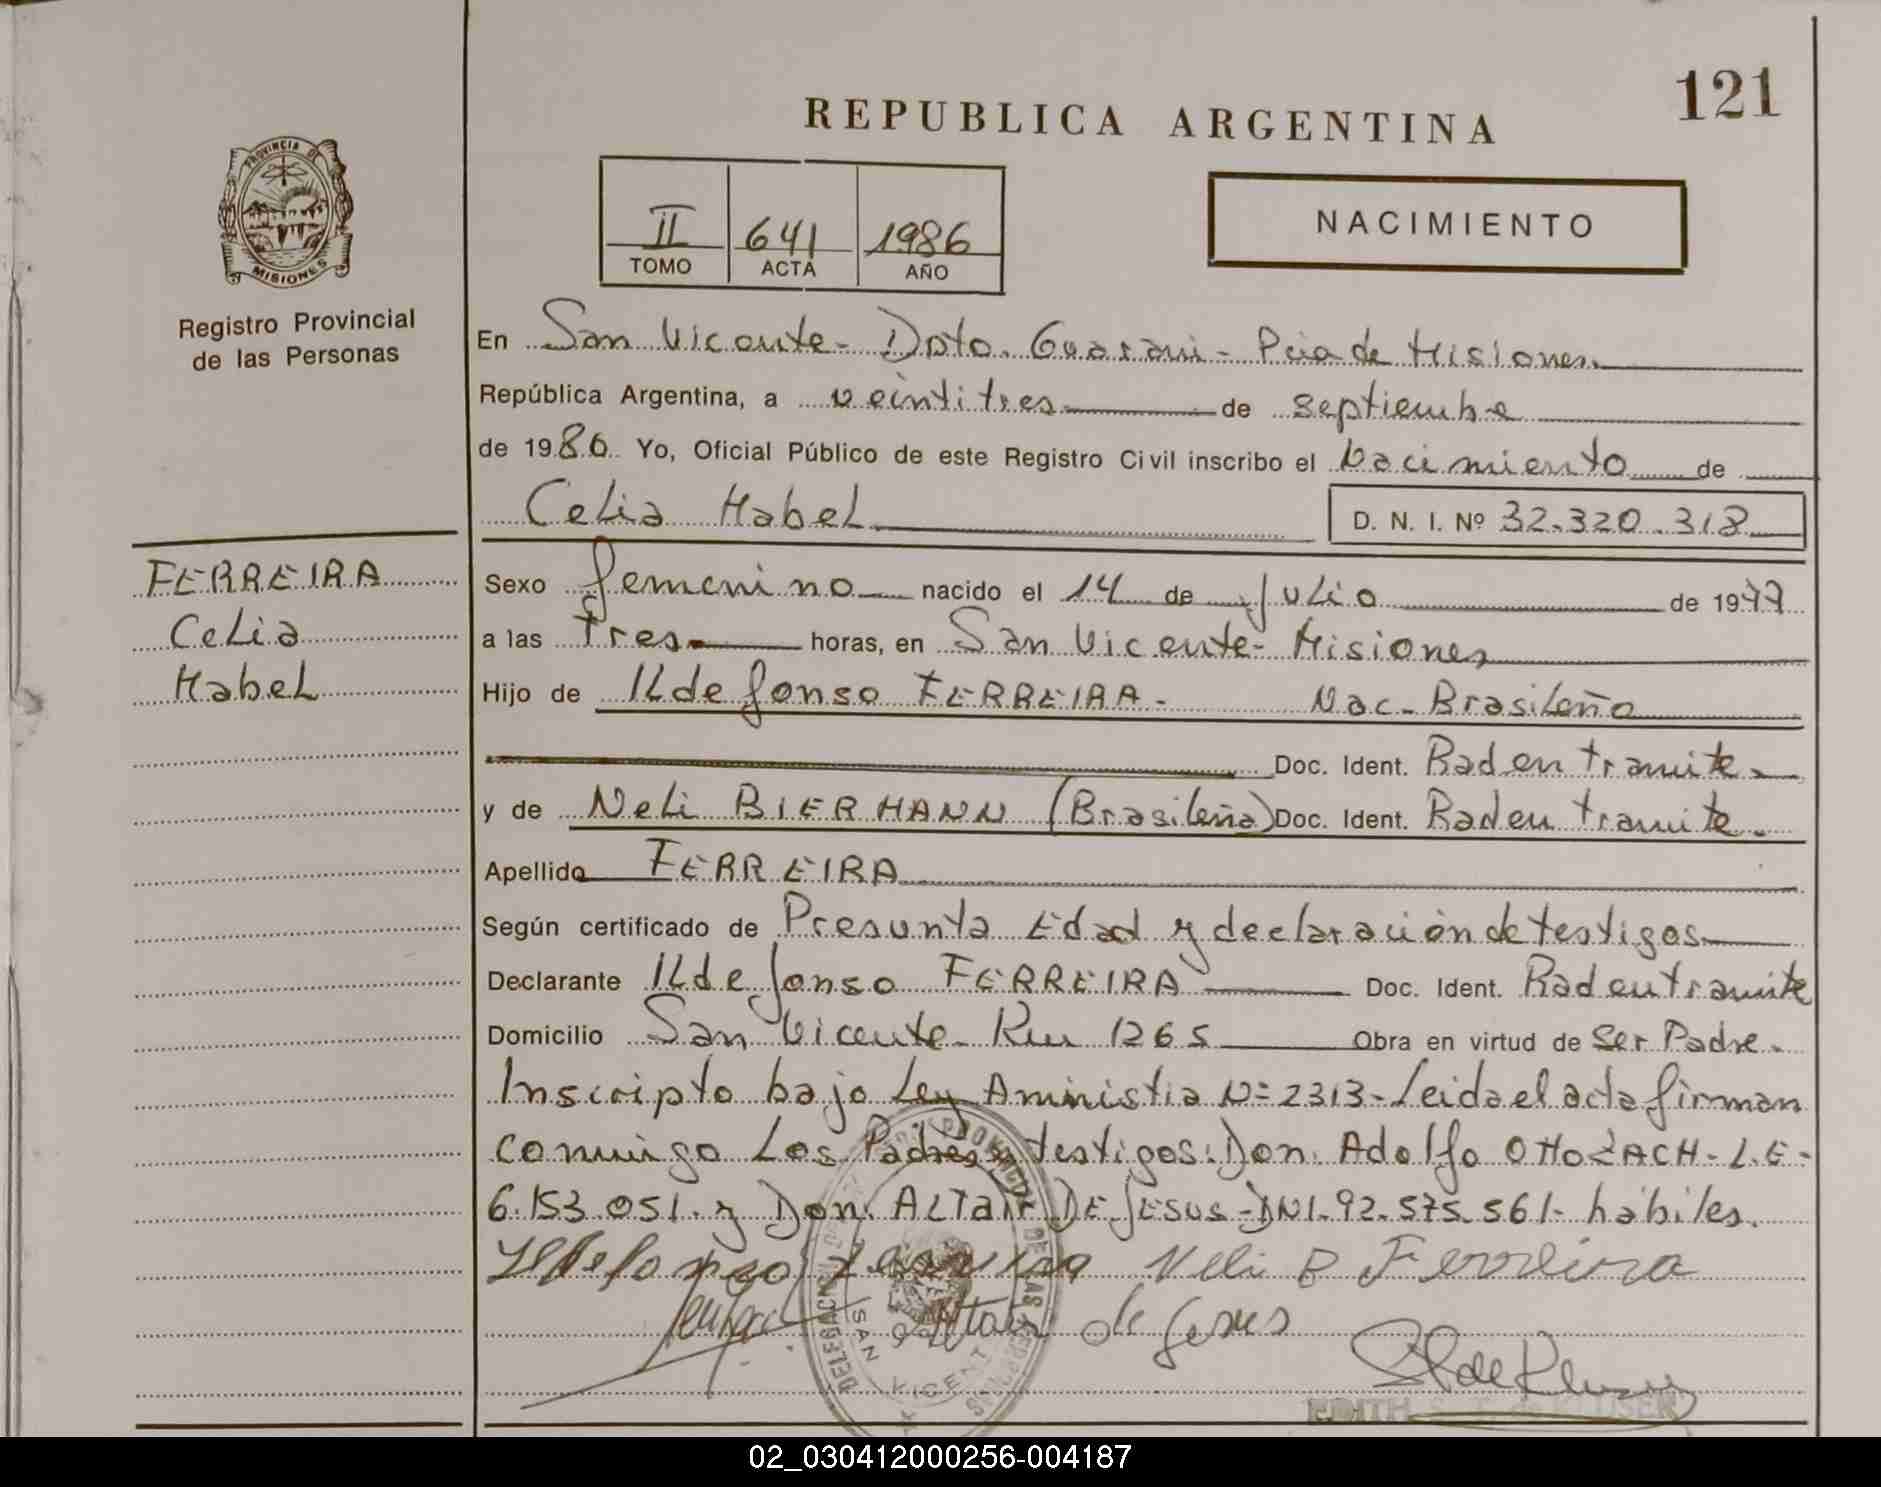 121
REPUBLICA ARGENTINA
PROVINCIA DE
MISIONES
Registro Provincial
de las Personas
II 641 1986
TOMO ACTA AÑO
NACIMIENTO
En San Vicente - Dpto. Guaraní - Pcia de Misiones.
República Argentina, a veintitres de septiembre
de 1986 Yo, Oficial Público de este Registro Civil inscribo el Nacimiento de
Celia Mabel D. N. I. Nº 32.320.318
FERREIRA
Celia
Mabel
Sexo femenino nacido el 14 de Julio de 1977
a las tres horas, en San Vicente - Misiones
Hijo de ILdefonso FERREIRA - Nac - Brasileño
Doc. Ident. Rad en tramite -
y de Neli BIERMANN (Brasileña) Doc. Ident. Rad en tramite.
Apellido FERREIRA
Según certificado de Presunta Edad y declaración de testigos
Declarante ILdefonso FERREIRA Doc. Ident. Rad en tramite
Domicilio San Vicente - Km 1265 Obra en virtud de Ser Padre -
Inscripto bajo Ley Aministia N= 2313 - Leida el acta firman
conmigo Los Padres y testigos: Don Adolfo - L.E -
6.153.051. y Don. ALTair DE JESUS - DNI. 92.575.561 - hábiles.
Ildefonso Ferreira Neli B Ferreira
Altair de Jesus
SAN VICENTE
EDITH S. T. de KLUSER
02_030412000256-004187